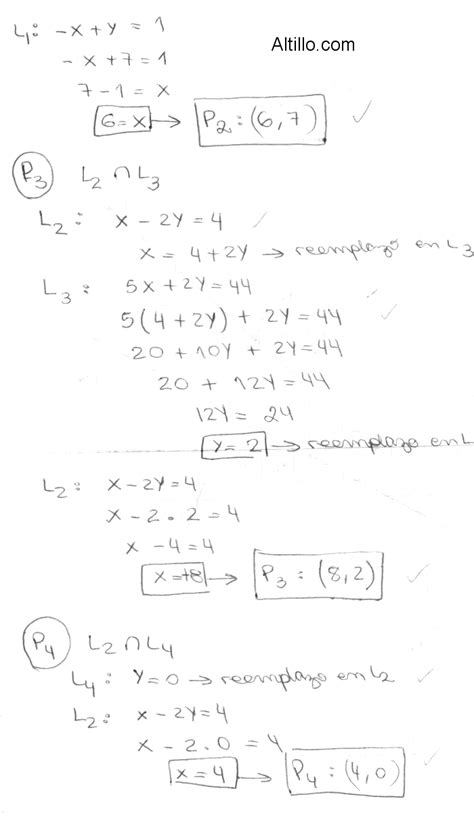 Altillo.com
L1: -x+y = 1
-x+7=1
7-1 = x
6=x → P2: (6,7) ✓
P3 L2 ∩ L3
L2: x-2y=4 ✓
x = 4+2y → reemplazo en L3
L3: 5x+2y=44
5(4+2y) + 2y=44 ✓
20 + 10y + 2y=44
20 + 12y=44
12y= 24
y= 2 → reemplazo en L
L2: x-2y=4
x-2.2=4
x -4=4
x=+8 → P3: (8,2) ✓
P4 L2 ∩ L4
L4: y=0 → reemplazo en L2 ✓
L2: x-2y=4
x-2.0 = 4
x=4 → P4: (4,0) ✓